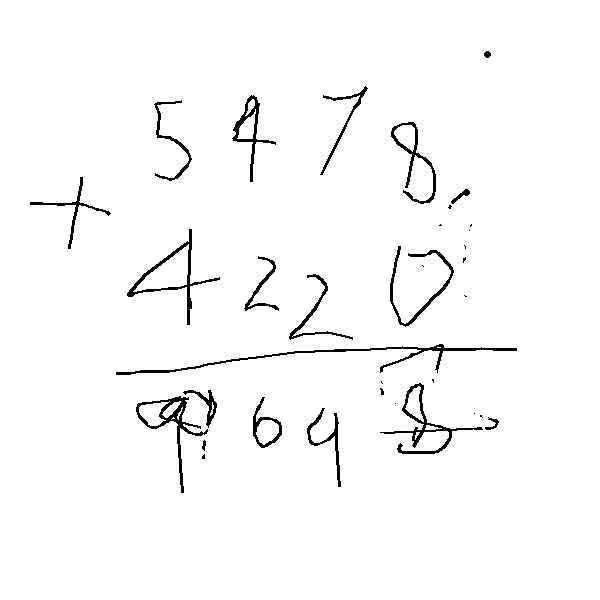 5478
+
4220
9698